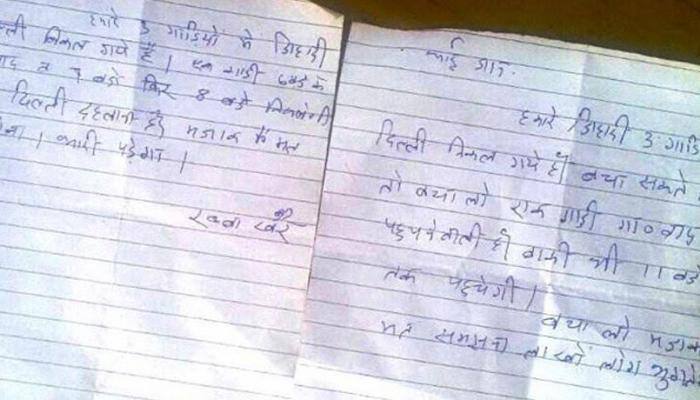 हमारे 3 गाडियो मे जिहादी
दिल्ली निकल गये हैं। एक गाडी 6 बजे के
बाद व 7 बजे फिर 8 बजे निकलेगी
दिल्ली दहलानी है, मजाक मे मत
लेना। भारी पड़ेगा।
रखवा की खैर
भाई जान.
हमारे जिहादी 3 गाडि
दिल्ली निकल गये हैं। बचा सकते
तो बचा लो एक गाडी गा०बाद
पहुचने वाली है। बाकी भी 11 बजे
तक पहुचेगी।
बचा लो मजाक
मत समझना लाखों लोग भुगते